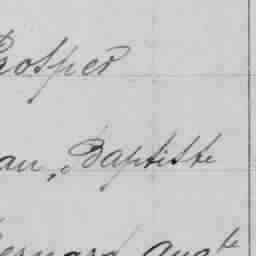 Prosper
au, Baptiste
Bernard Aug^te